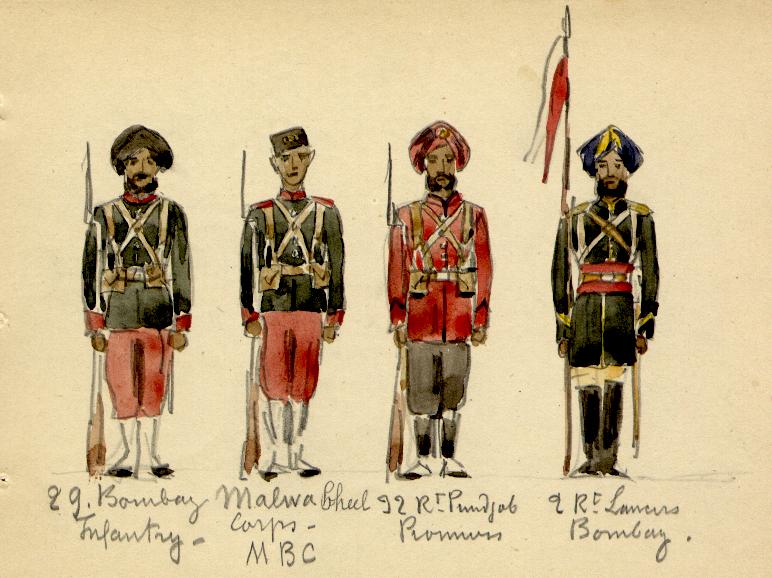 29. Bombay
Infantry -
Malwa Bheel
Corps -
MBC
32 Rt Pundjab
Pionniers
2 Rt Lancers
Bombay.